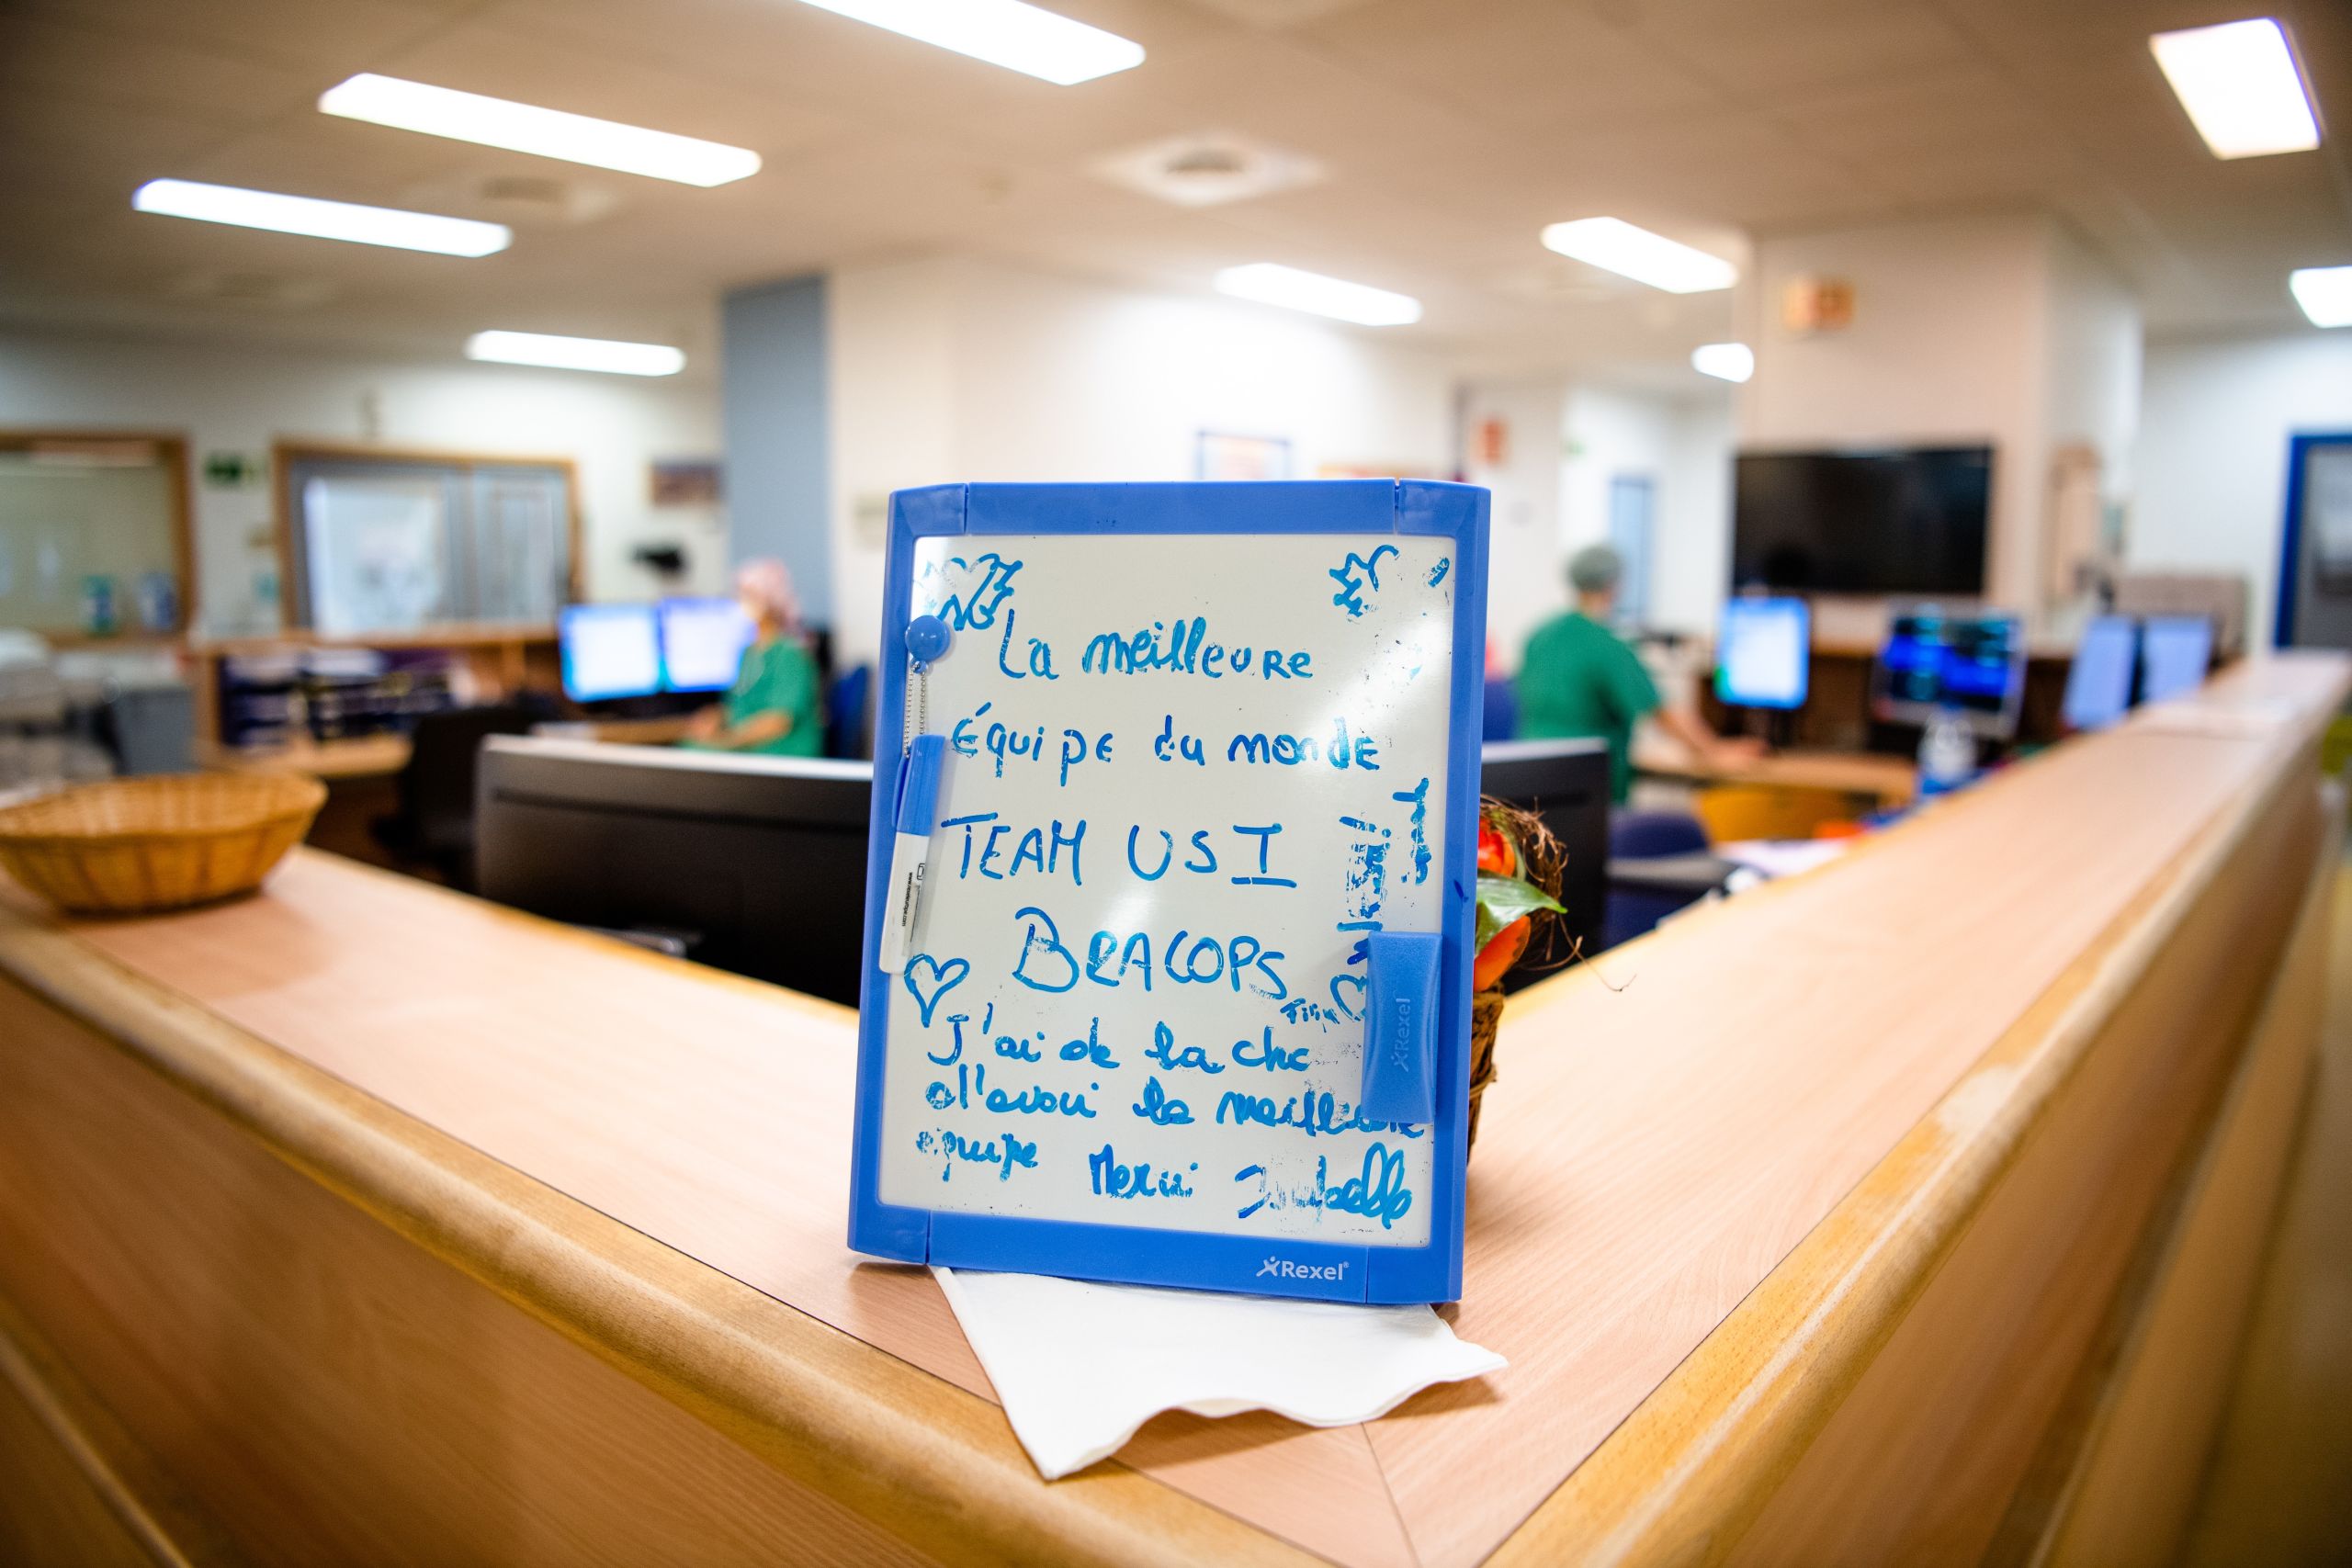 La meilleure
Équipe du monde
TEAM USI
BRACOPS
J'ai de la chc
d'avoir la meilleure
équipe Merci Isabelle
Rexel
Rexel